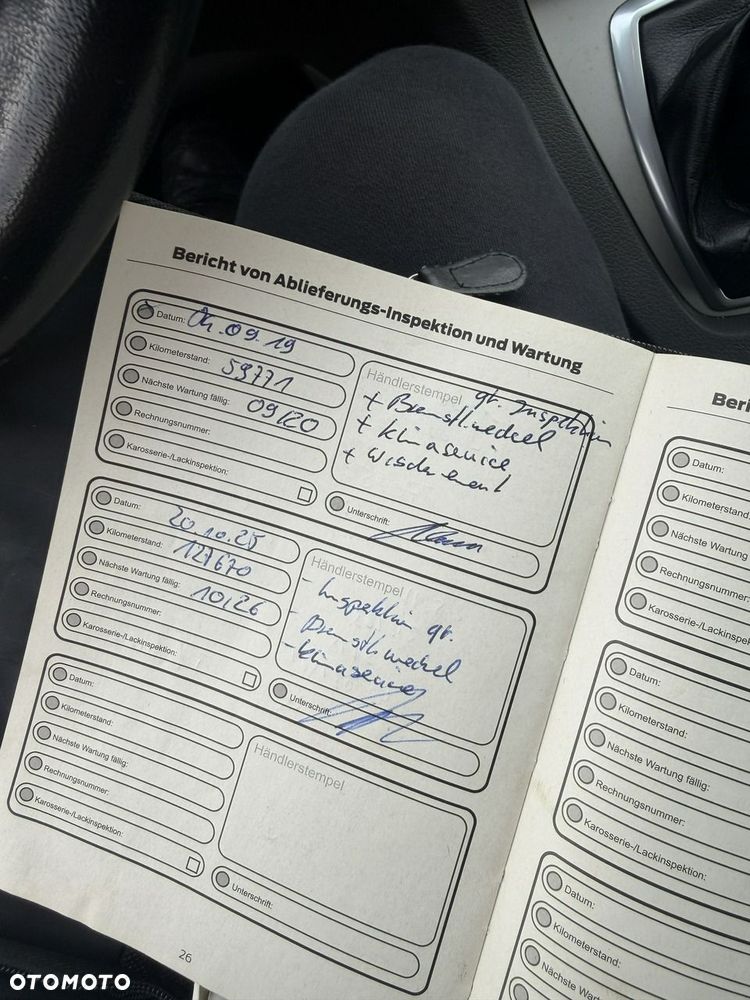 Bericht von Ablieferungs-Inspektion und Wartung
Datum: 04.09.19
Kilometerstand: 59771
Nächste Wartung fällig: 09/20
Rechnungsnummer:
Karosserie-/Lackinspektion:
Händlerstempel gr. Inspektion
+ Bremsfl.wechsel
+ Klimaservice
+ Wischerement
Unterschrift:
Datum: 20.10.25
Kilometerstand: 127670
Nächste Wartung fällig: 10/26
Rechnungsnummer:
Karosserie-/Lackinspektion:
Händlerstempel
- Inspektion gr.
- Bremsfl.wechsel
- Klimaservice
Unterschrift:
Datum:
Kilometerstand:
Nächste Wartung fällig:
Rechnungsnummer:
Karosserie-/Lackinspektion:
Händlerstempel
Unterschrift:
26
Beri
Datum:
Kilometerstand:
Nächste Wartung
Rechnungsnummer:
Karosserie-/Lackinspek
Datum:
Kilometerstand:
Nächste Wartung fällig:
Rechnungsnummer:
Karosserie-/Lackinspektion:
Datum:
Kilometerstand:
Nächste Wartung
Rechnungsnu
OTOMOTO